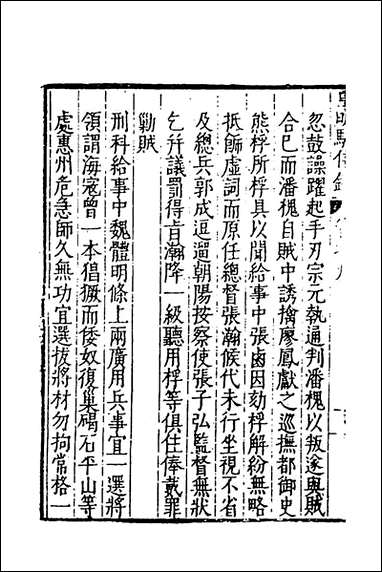 忽鼓譟躍起手刃宗元執通判潘槐以叛遂與賊
合巳而潘槐自賊中誘擒廖鳳獻之巡撫都御史
熊桴所桴具以聞給事中張鹵因劾桴解紛無略
抵飾虛詞而原任總督張瀚候代未行坐視不省
及總兵郭成逗遛朝陽按察使張子弘監督無狀
乞幷議罰得肯瀚降一級聽用桴等俱住俸戴罪
勦賊
刑科給事中魏體明條上兩廣用兵事宜一選將
領謂海寇曾一本猖獗而倭奴復巢碣石平山等
處惠州危急師久無功宜選拔將材勿拘常格一